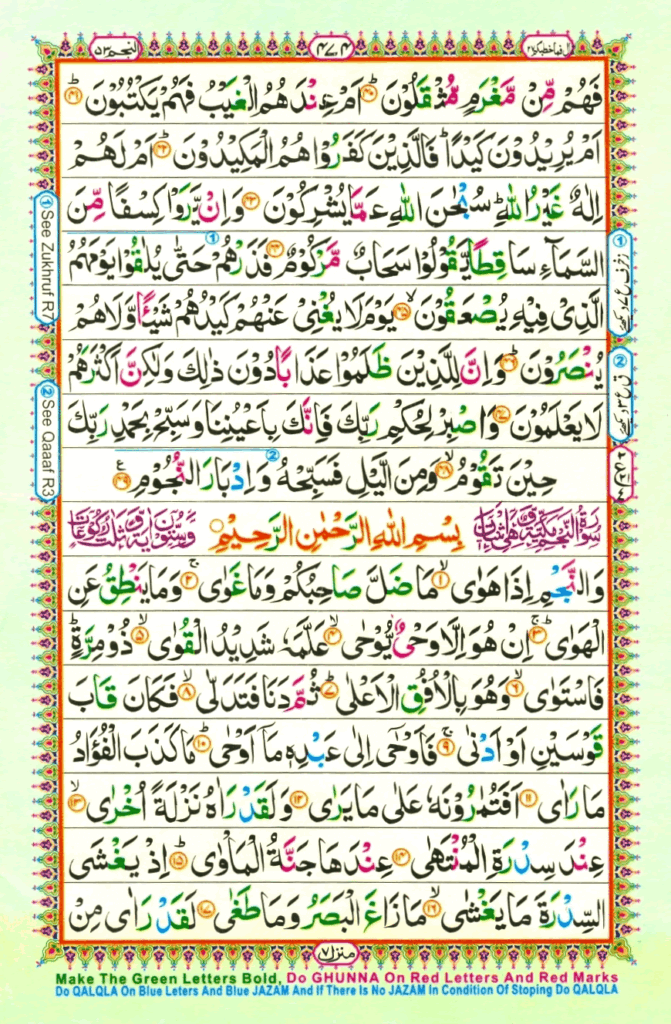 النجم ۵۳
۴۷۴
قال فما خطبكم ۲۷
فَهُمْ مِّنْ مَّغْرَمٍ مُّثْقَلُوْنَ ۴۰ اَمْ عِنْدَهُمُ الْغَيْبُ فَهُمْ يَكْتُبُوْنَ ۴۱
اَمْ يُرِيْدُوْنَ كَيْدًا فَالَّذِيْنَ كَفَرُوْا هُمُ الْمَكِيْدُوْنَ ۴۲ اَمْ لَهُمْ
اِلٰهٌ غَيْرُ اللّٰهِ سُبْحٰنَ اللّٰهِ عَمَّا يُشْرِكُوْنَ ۴۳ وَاِنْ يَّرَوْا كِسْفًا مِّنَ
السَّمَآءِ سَاقِطًا يَّقُوْلُوْا سَحَابٌ مَّرْكُوْمٌ ۴۴ فَذَرْهُمْ حَتّٰى يُلٰقُوْا يَوْمَهُمُ
الَّذِىْ فِيْهِ يُصْعَقُوْنَ ۴۵ يَوْمَ لَا يُغْنِىْ عَنْهُمْ كَيْدُهُمْ شَيْـًٔا وَّلَا هُمْ
يُنْصَرُوْنَ ۴۶ وَاِنَّ لِلَّذِيْنَ ظَلَمُوْا عَذَابًا دُوْنَ ذٰلِكَ وَلٰكِنَّ اَكْثَرَهُمْ
لَا يَعْلَمُوْنَ ۴۷ وَاصْبِرْ لِحُكْمِ رَبِّكَ فَاِنَّكَ بِاَعْيُنِنَا وَسَبِّحْ بِحَمْدِ رَبِّكَ
حِيْنَ تَقُوْمُ ۴۸ وَمِنَ الَّيْلِ فَسَبِّحْهُ وَاِدْبَارَ النُّجُوْمِ ۴۹
سورة النجم مكية وهي اثنتان
بِسْمِ اللّٰهِ الرَّحْمٰنِ الرَّحِيْمِ
وستون اية وثلث ركوعات
وَالنَّجْمِ اِذَا هَوٰى ۱ مَا ضَلَّ صَاحِبُكُمْ وَمَا غَوٰى ۲ وَمَا يَنْطِقُ عَنِ
الْهَوٰى ۳ اِنْ هُوَ اِلَّا وَحْىٌ يُّوْحٰى ۴ عَلَّمَهٗ شَدِيْدُ الْقُوٰى ۵ ذُوْ مِرَّةٍ
فَاسْتَوٰى ۶ وَهُوَ بِالْاُفُقِ الْاَعْلٰى ۷ ثُمَّ دَنَا فَتَدَلّٰى ۸ فَكَانَ قَابَ
قَوْسَيْنِ اَوْ اَدْنٰى ۹ فَاَوْحٰٓى اِلٰى عَبْدِهٖ مَآ اَوْحٰى ۱۰ مَا كَذَبَ الْفُؤَادُ
مَا رَاٰى ۱۱ اَفَتُمٰرُوْنَهٗ عَلٰى مَا يَرٰى ۱۲ وَلَقَدْ رَاٰهُ نَزْلَةً اُخْرٰى ۱۳
عِنْدَ سِدْرَةِ الْمُنْتَهٰى ۱۴ عِنْدَهَا جَنَّةُ الْمَاْوٰى ۱۵ اِذْ يَغْشَى
السِّدْرَةَ مَا يَغْشٰى ۱۶ مَا زَاغَ الْبَصَرُ وَمَا طَغٰى ۱۷ لَقَدْ رَاٰى مِنْ
منزل ۷
① See Zukhruf R7
② See Qaaaf R3
Make The Green Letters Bold, Do GHUNNA On Red Letters And Red Marks
Do QALQLA On Blue Leters And Blue JAZAM And If There Is No JAZAM In Condition Of Stoping Do QALQLA